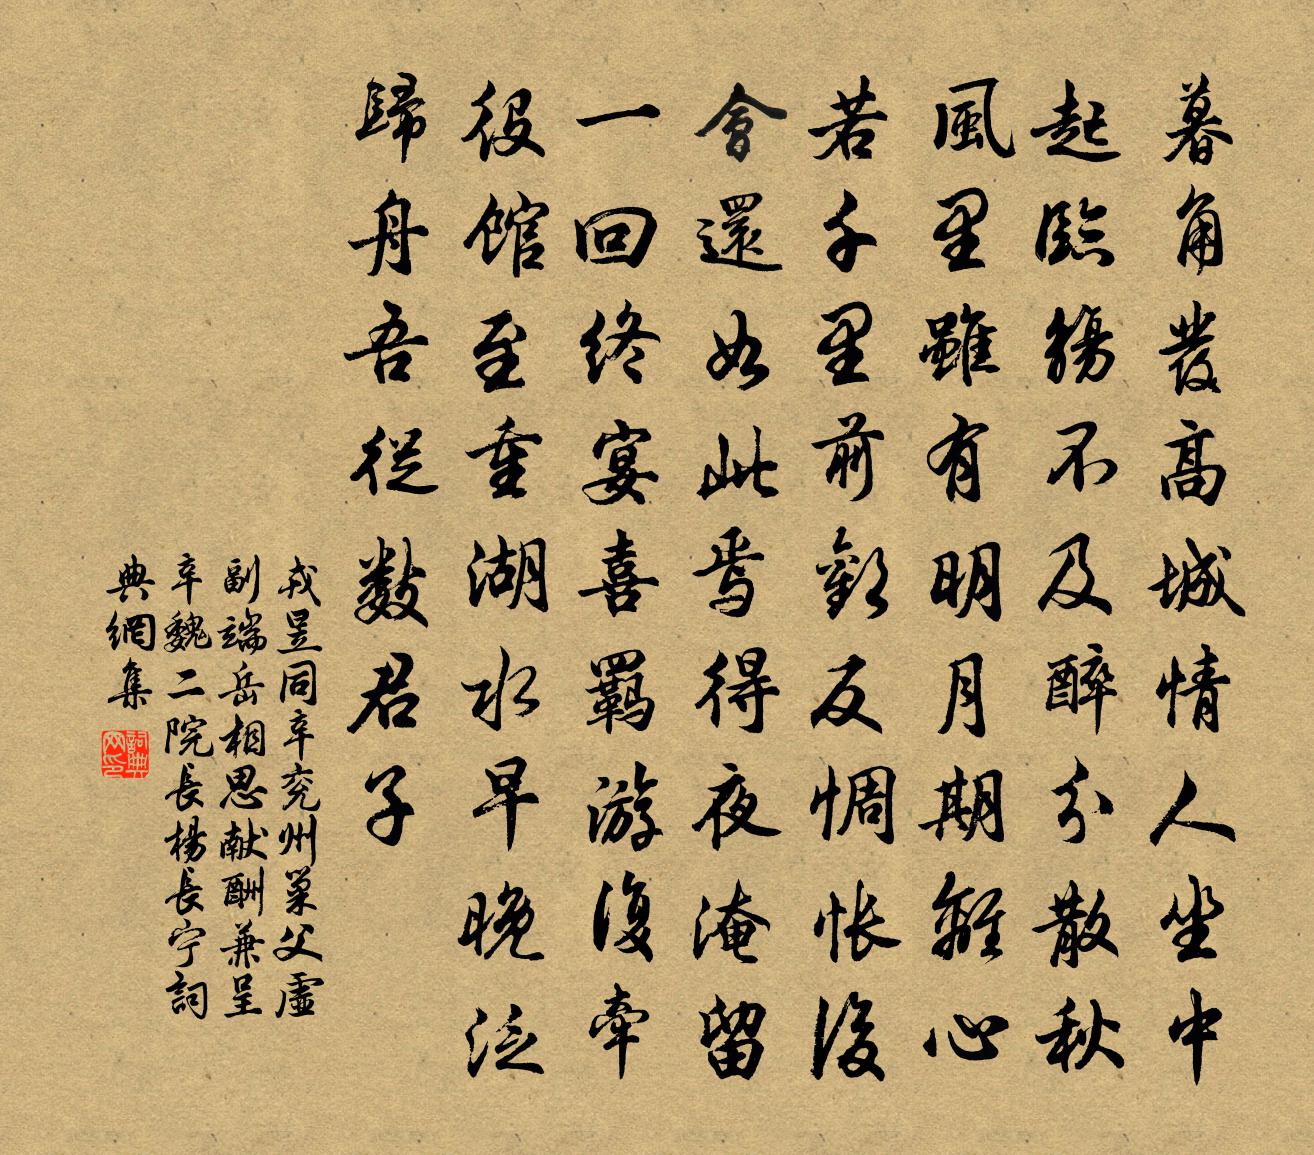 暮角發高城情人坐中
起臨觴不及醉分散秋
風里雖有明月期離心
若千里前歡反惆悵後
會還如此焉得夜淹留
一回終宴喜羈游復牽
役館至重湖水早晚泛
歸舟吾從數君子
戎昱同辛兗州巢父虛
副端岳相思献酬兼呈
辛魏二院長楊長宁詞
典網集
詞典
网印